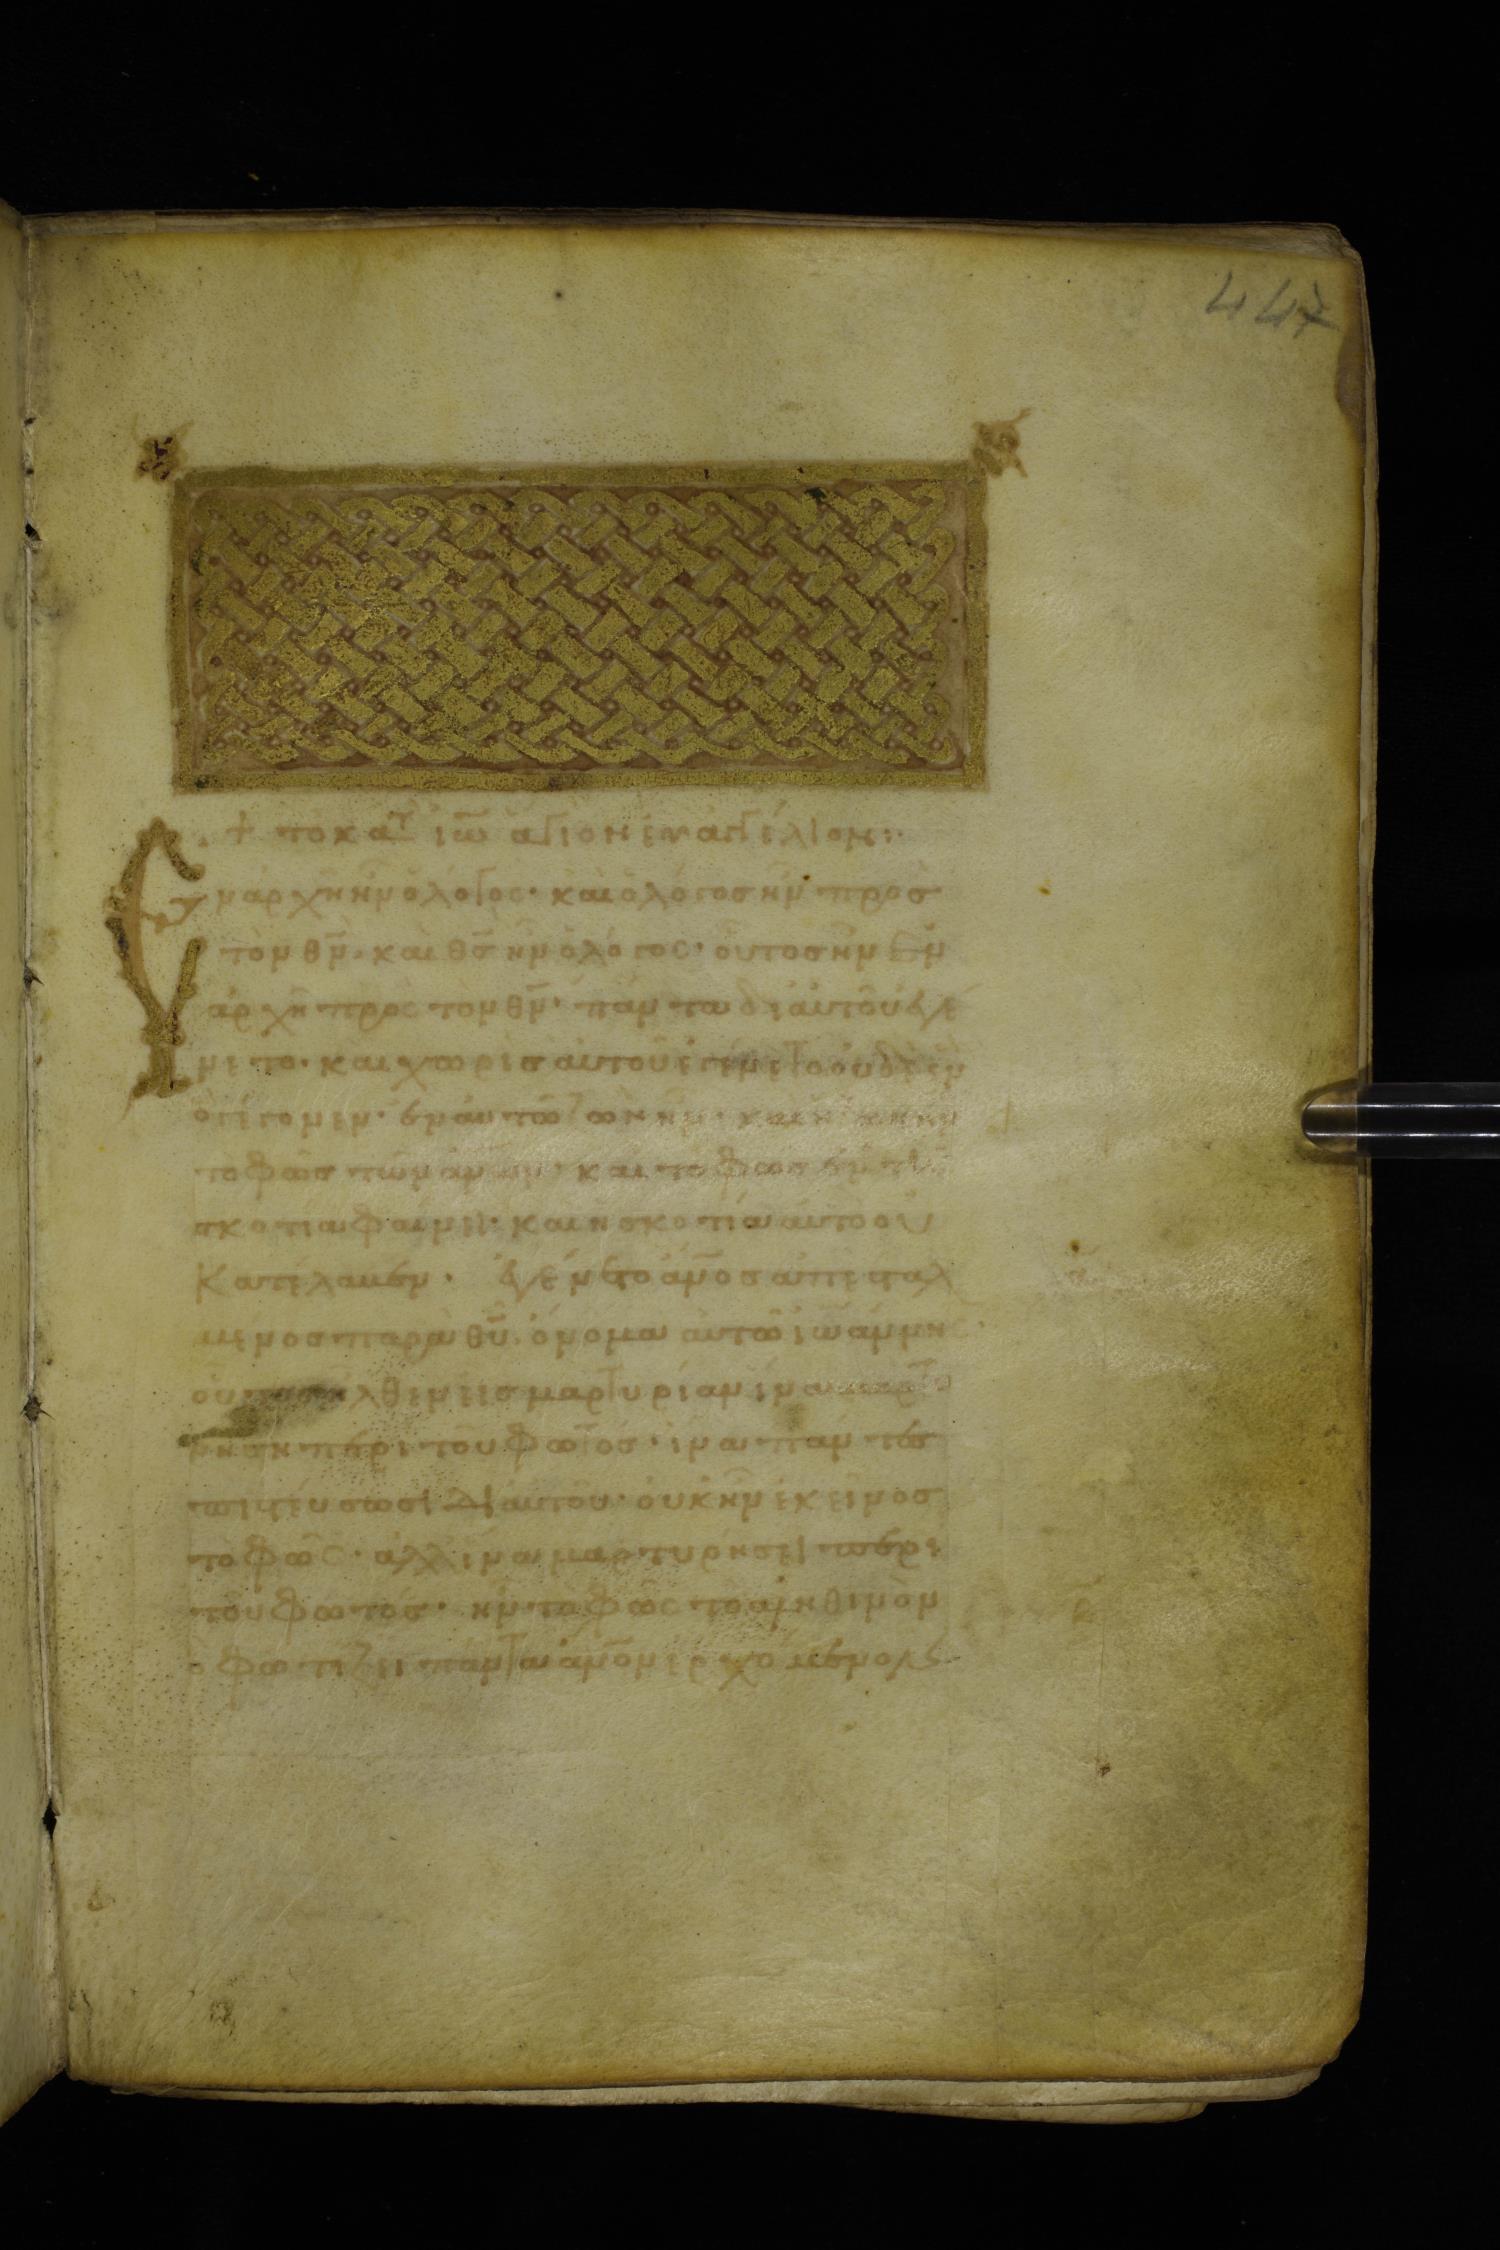 447
+ τὸ κατ ἰω ἅγιον ἐυαγγέλιον:
Εν ἀρχῆ ἦν ὁ λόγος· καὶ ὁ λόγος ἦν πρὸς
τὸν θν̄· καὶ θς̄ ἦν ὁ λόγος· οὗτος ἦν ἐν
ἀρχῆ πρὸς τὸν θν̄· πάντα δι ἀυτοῦ ἐγέ
νετο· καὶ χωρὶς ἀυτοῦ ἐγένετο ὀυδὲ ἓν
ὃ γέγονεν· ἐν ἀυτῶ ζωὴ ἦν· καὶ ἡ ζωὴ ἦν
τὸ φῶς τῶν ἀνων· καὶ τὸ φῶς ἐν τῆ
σκοτία φαίνει· καὶ ἡ σκοτία ἀυτὸ οὐ
κατέλαβεν· ἐγένετο ἀνος ἀπεσταλ
μένος παρὰ θῡ· ὄνομα ἀυτῶ ἰωάννης·
οὗτος ἦλθεν εἰς μαρτυρίαν ἵνα μαρτυ
ρήση περὶ τοῦ φωτός· ἵνα πάντες
πιστέυσωσι δι ἀυτοῦ· οὐκ ἦν ἐκεῖνος
τὸ φῶς· ἀλλ ἵνα μαρτυρήσει περὶ
τοῦ φωτός· ἦν τὸ φῶς τὸ ἀληθινὸν
ὃ φωτίζει πάντα ἀνον ἐρχόμενον